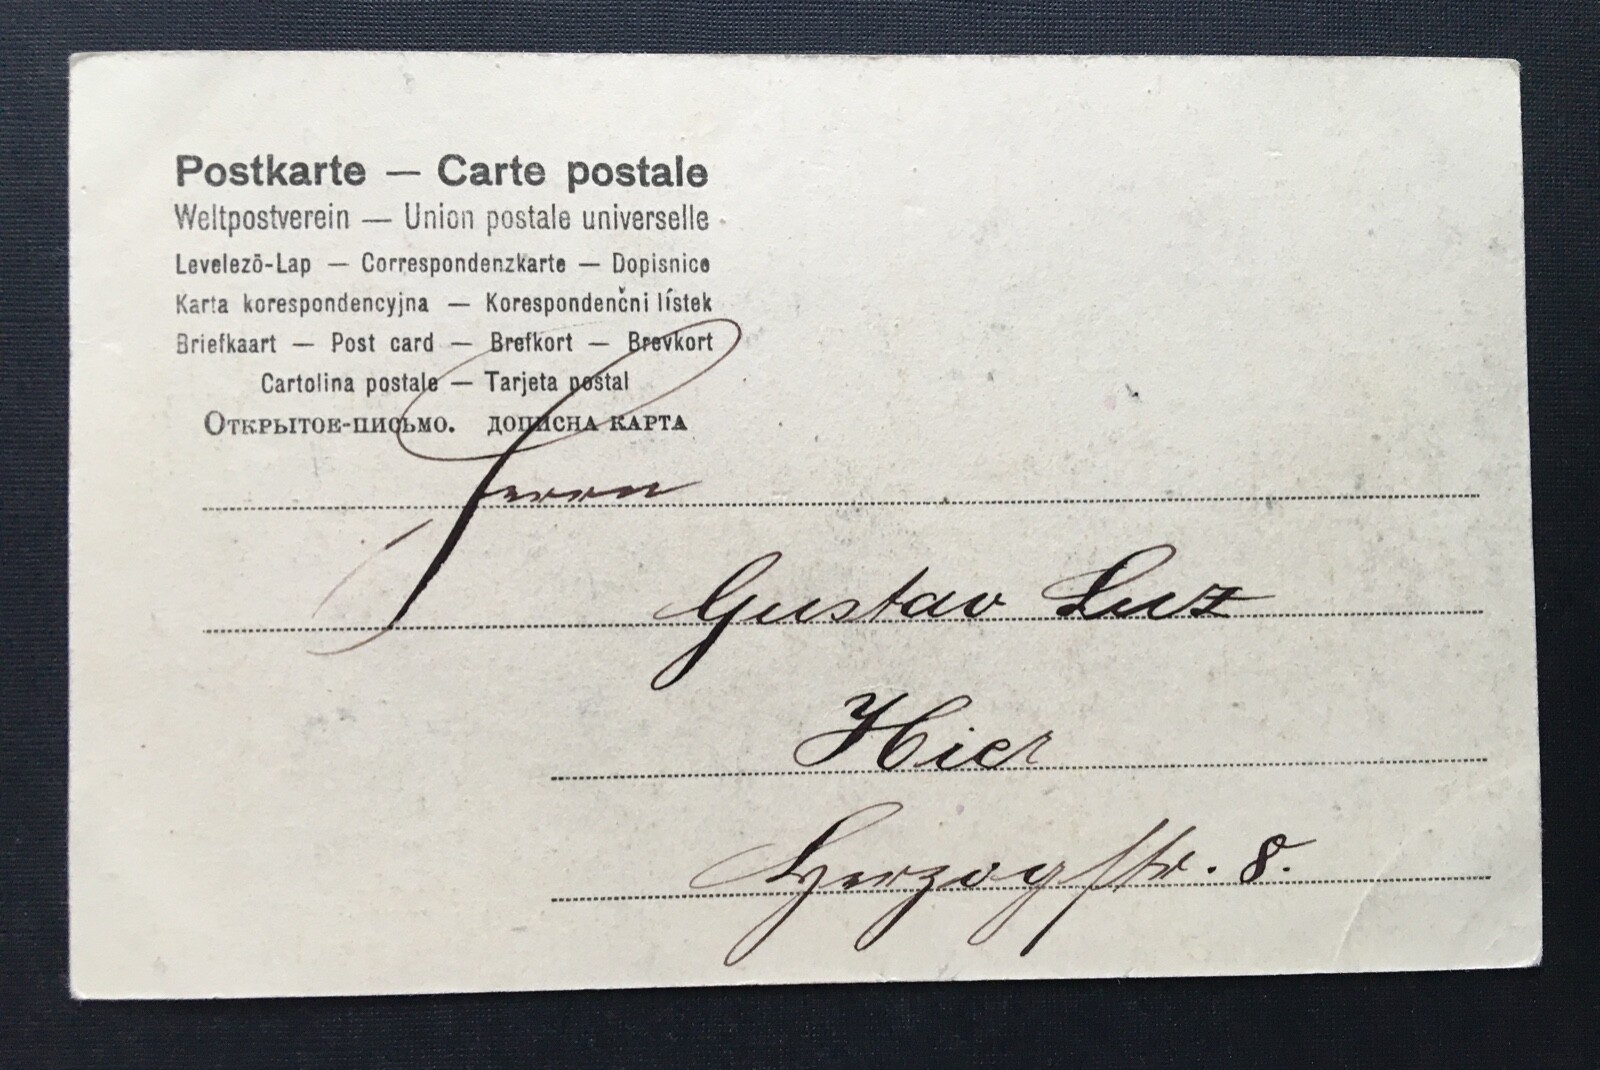 Postkarte — Carte postale
Weltpostverein — Union postale universelle
Levelezö-Lap — Correspondenzkarte — Dopisnice
Karta korespondencyjna — Korespondenčni lístek
Briefkaart — Post card — Brefkort — Brevkort
Cartolina postale — Tarjeta postal
Открытое-письмо. дописна карта
Herrn
Gustav Luz
Hier
Herzogstr. 8.